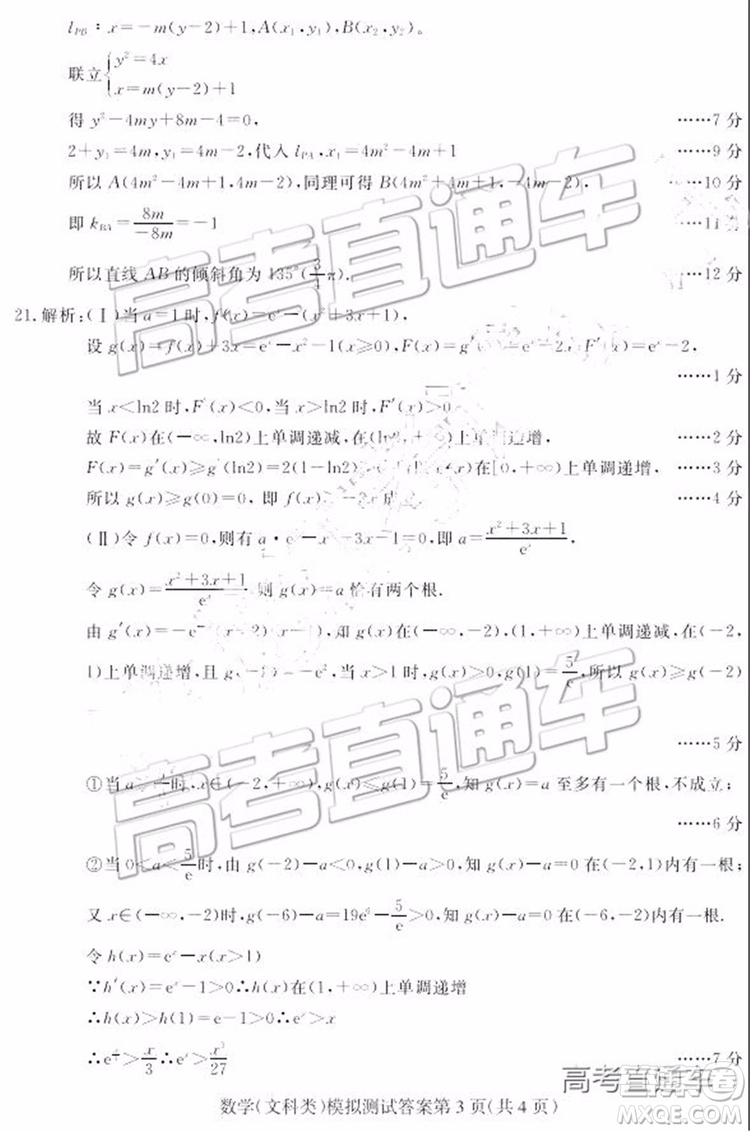 l_PB：x=-m(y-2)+1,A(x₁,y₁),B(x₂,y₂)。
联立{y²=4x
x=m(y-2)+1
得 y²-4my+8m-4=0, ……7 分
2+y₁=4m,y₁=4m-2,代入 l_PA,x₁=4m²-4m+1 ……9 分
所以 A(4m²-4m+1,4m-2),同理可得 B(4m²+4m+1,-4m-2), ……10 分
即 k_BA=8m/-8m=-1 ……11 分
所以直线 AB 的倾斜角为 135°(3/4π). ……12 分
21.解析:(Ⅰ)当 a=1 时,f(x)=eˣ-(x²+3x+1),
设 g(x)=f(x)+3x=eˣ-x²-1(x≥0),F(x)=g′(x)=eˣ-2x,F′(x)=eˣ-2,
……1 分
当 x<ln2 时,F′(x)<0,当 x>ln2 时,F′(x)>0
故 F(x)在(-∞,ln2)上单调递减,在(ln2,+∞)上单调递增, ……2 分
F(x)=g′(x)≥g′(ln2)=2(1-ln2)>0,g(x)在[0,+∞)上单调递增, ……3 分
所以 g(x)≥g(0)=0,即 f(x)≥-3x成立. ……4 分
(Ⅱ)令 f(x)=0,则有 a·eˣ-x²-3x-1=0,即 a=x²+3x+1/eˣ,
令 g(x)=x²+3x+1/eˣ,则 g(x)=a 恰有两个根.
由 g′(x)=-e⁻ˣ 知 g(x)在(-∞,-2),(1,+∞)上单调递减,在(-2,
1)上单调递增,且 g(-2)=-e²,当 x>1 时,g(x)>0,g(1)=5/e,所以 g(x)≥g(-2)
……5 分
①当 a≥5/e时,x∈(-2,+∞),g(x)≤g(1)=5/e,知 g(x)=a 至多有一个根,不成立;
……6 分
②当 0<a<5/e时,由 g(-2)-a<0,g(1)-a>0,知 g(x)-a=0 在(-2,1)内有一根;
又 x∈(-∞,-2)时,g(-6)-a=19e⁶-5/e>0,知 g(x)-a=0 在(-6,-2)内有一根.
令 h(x)=eˣ-x(x>1)
∵h′(x)=eˣ-1>0∴h(x)在(1,+∞)上单调递增
∴h(x)>h(1)=e-1>0∴eˣ>x
∴e^(x/3)>x/3∴eˣ>x³/27 ……7 分
数学(文科类)模拟测试答案第 3 页(共 4 页)
高考直通车
高考直通车
高考直通车
MXQE.COM